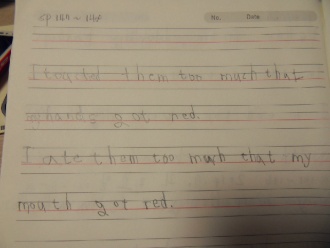 No.
Date
I them too much that
hands got red.
I ate them too much that my
mouth got red.